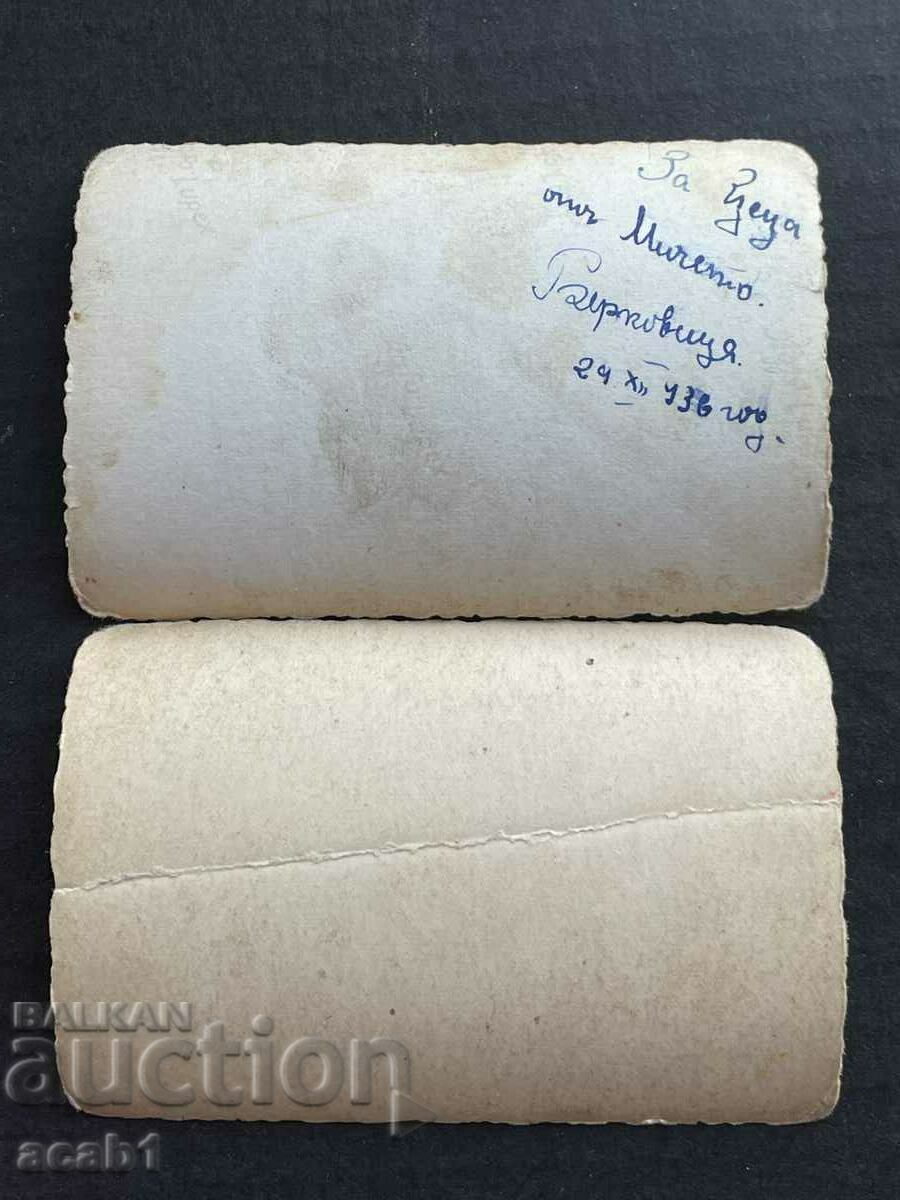 За Цеца
отъ Мичето.
Берковица.
29 XII 936 год.
BALKAN
auction
acab1